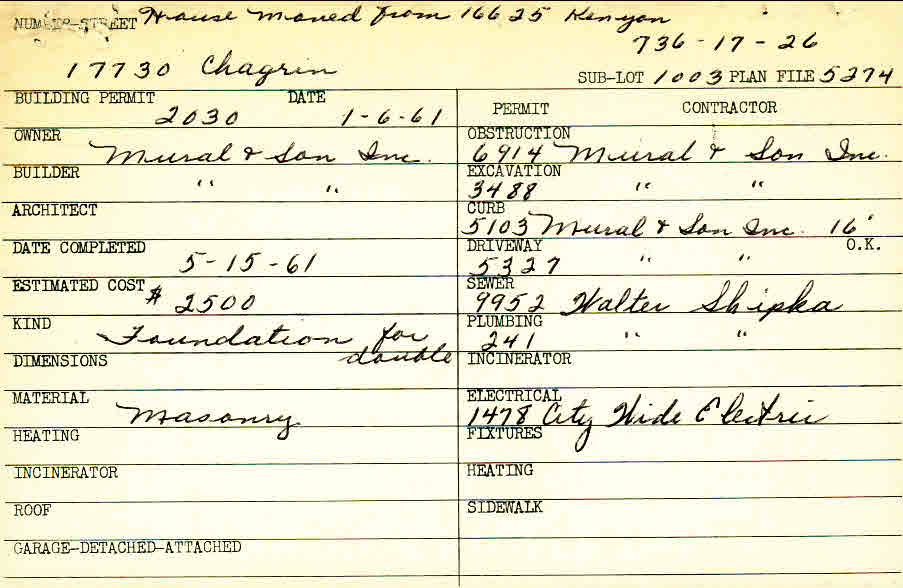 NUMBER-STREET House moved from 16625 Kenyon
736-17-26
17730 Chagrin
SUB-LOT 1003 PLAN FILE 5274
BUILDING PERMIT DATE
2030 1-6-61
PERMIT CONTRACTOR
OWNER
Mural & Son Inc.
OBSTRUCTION
6914 Mural & Son Inc.
BUILDER
" "
EXCAVATION
3488 " "
ARCHITECT
CURB
5103 Mural & Son Inc. 16'
DATE COMPLETED
5-15-61
DRIVEWAY O.K.
5327 " "
ESTIMATED COST
$ 2500
SEWER
9952 Walter Shipka
KIND
Foundation for
double
PLUMBING
241 " "
DIMENSIONS
INCINERATOR
MATERIAL
Masonry
ELECTRICAL
1478 City Wide Electric
HEATING
FIXTURES
INCINERATOR
HEATING
ROOF
SIDEWALK
GARAGE-DETACHED-ATTACHED